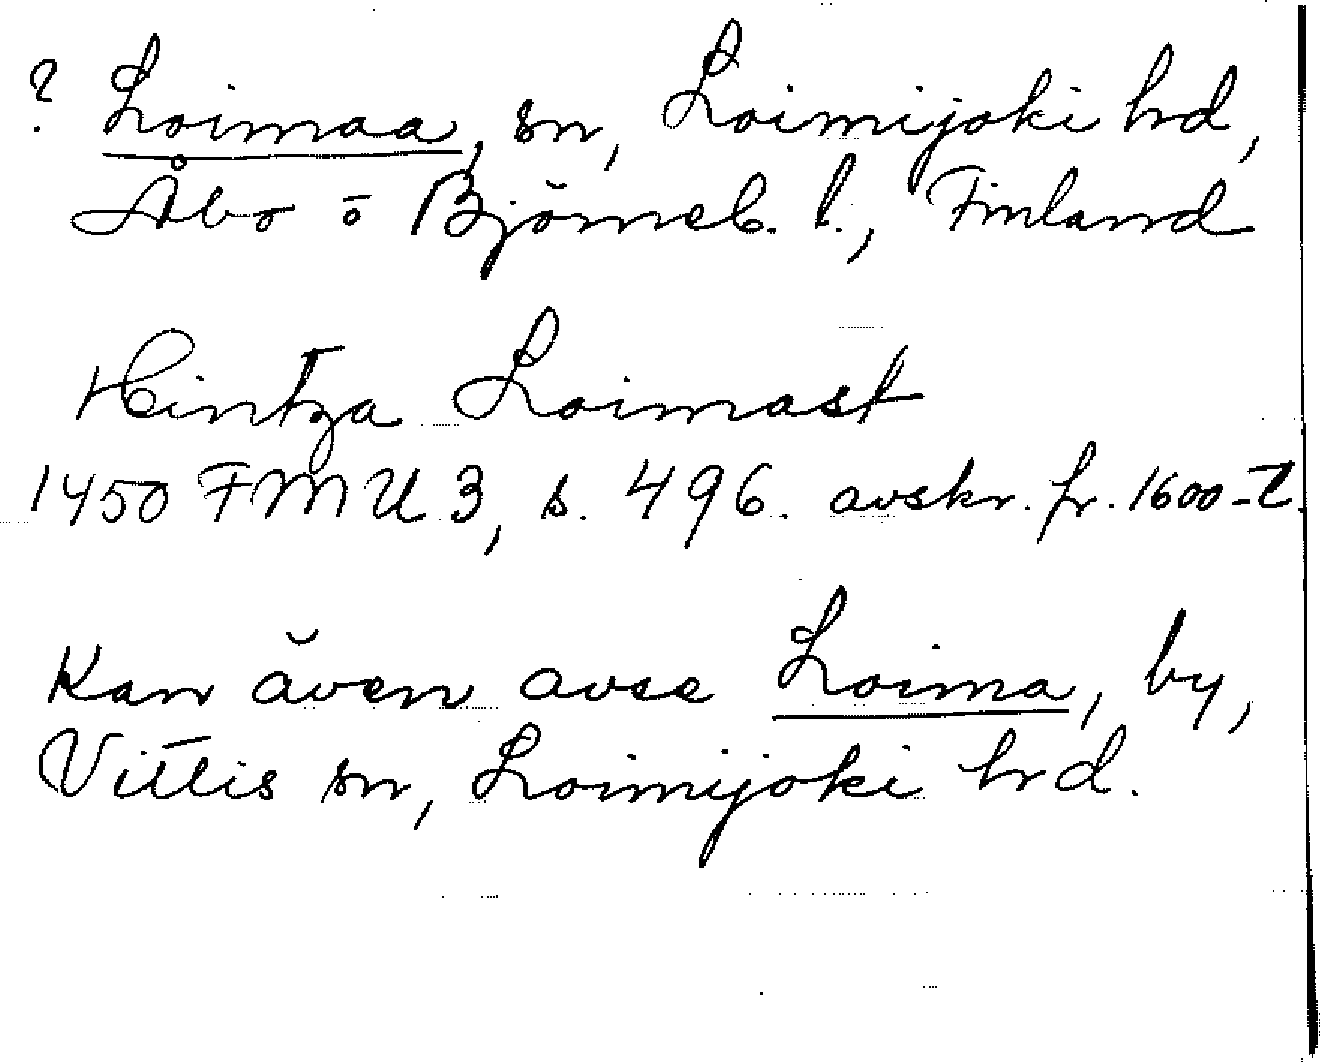 ? Loimaa, sn, Loimijoki hrd,
Åbo o Björneb. l., Finland
Hintza Loimast
1450 FMU 3, s. 496. avskr. fr. 1600-t.
Kan även avse Loima, by,
Vittis sn, Loimijoki hrd.